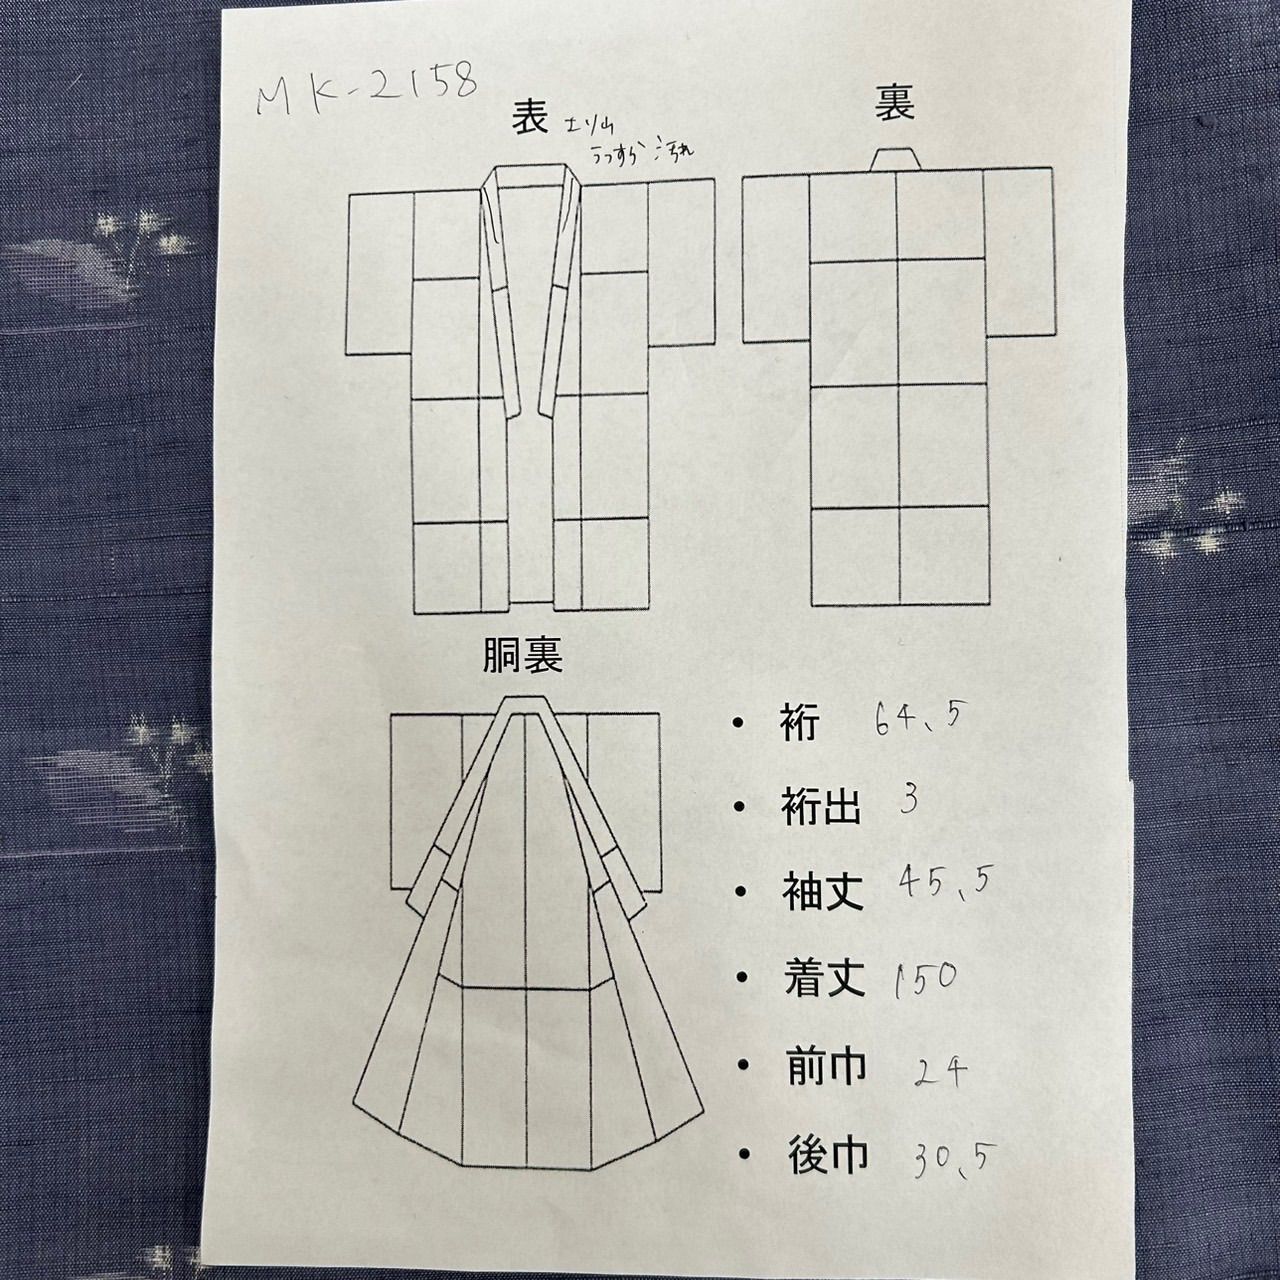 MK-2158
表
エリ山
うっすら汚れ
裏
胴裏
・裄 64、5
・裄出 3
・袖丈 45、5
・着丈 150
・前巾 24
・後巾 30、5